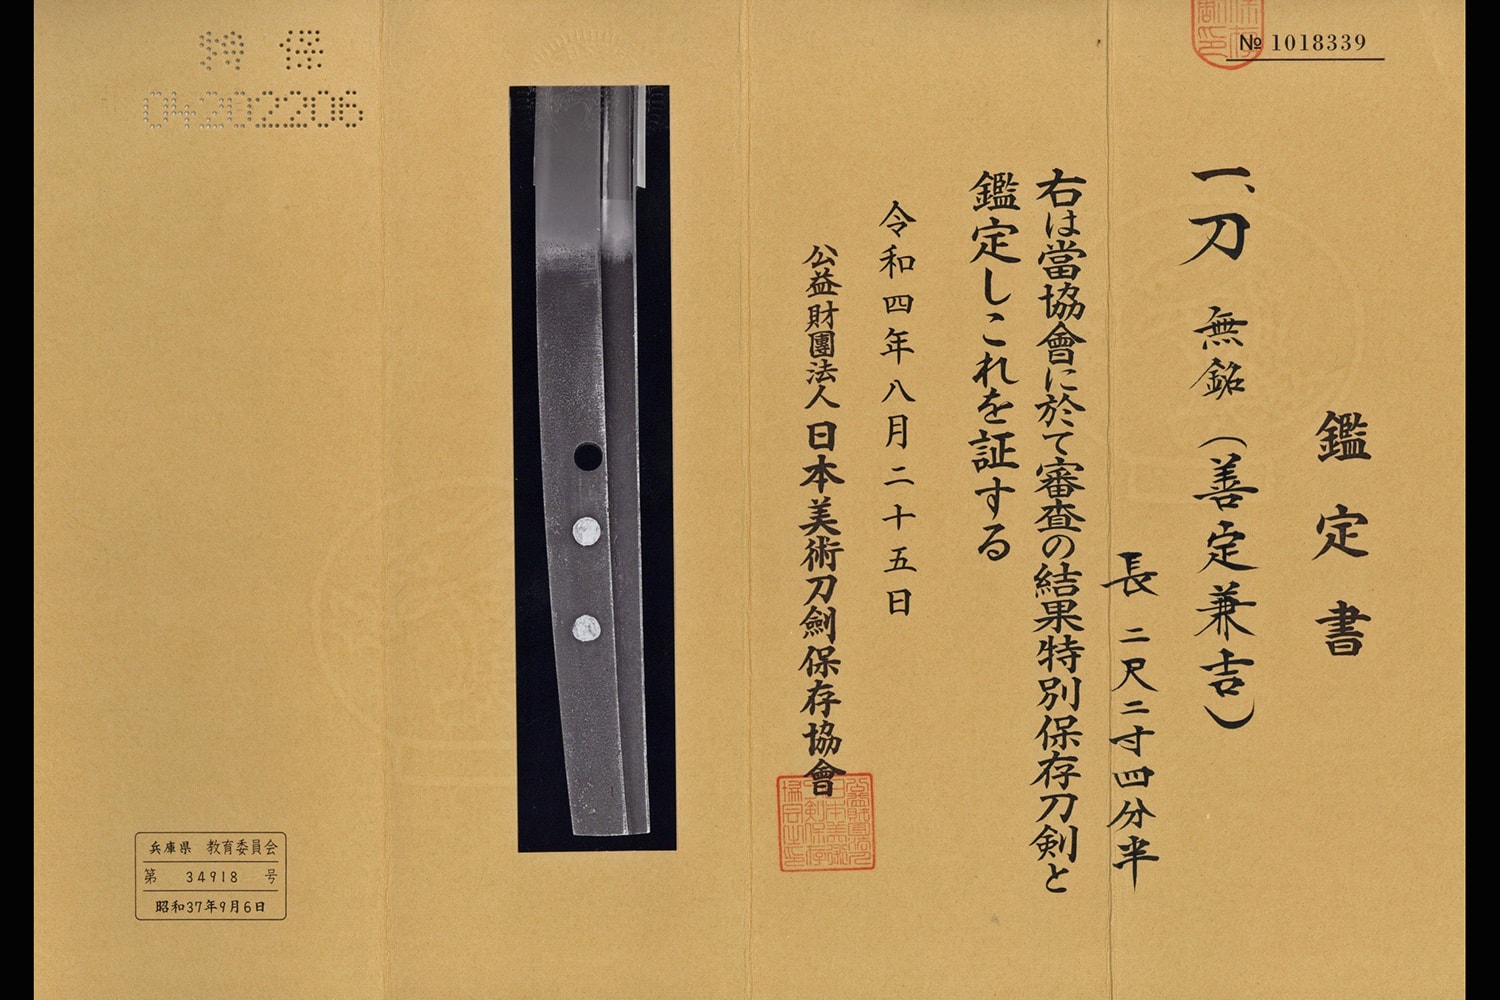 № 1018339
鑑定書
一、刀 無銘(善定兼吉)
長 二尺二寸四分半
右は當協會に於て審査の結果特別保存刀剣と
鑑定しこれを証する
令和四年八月二十五日
公益財團法人 日本美術刀劍保存協會
特 保
04202206
兵庫県 教育委員会
第 34918 号
昭和37年9月6日